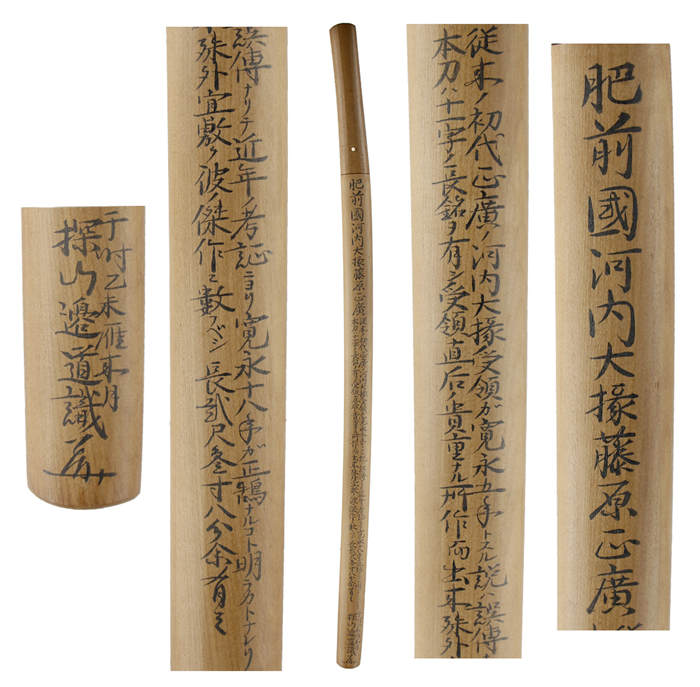 肥前國河内大掾藤原正廣
従来ノ初代正廣ノ河内大掾受領ガ寛永五年トスル説ハ誤傳
本刀ハ十一字ノ長銘ヲ有シ受領直后ノ貴重ナル所作而出来殊外
誤傳ナリテ近年ノ考証ニヨリ寛永十八年ガ正鵠ナルコト明ラカトナレリ
殊外宜敷ク彼ノ傑作ニ数フベシ 長弐尺参寸八分余有之
于時乙未雁来月
探山邉道識